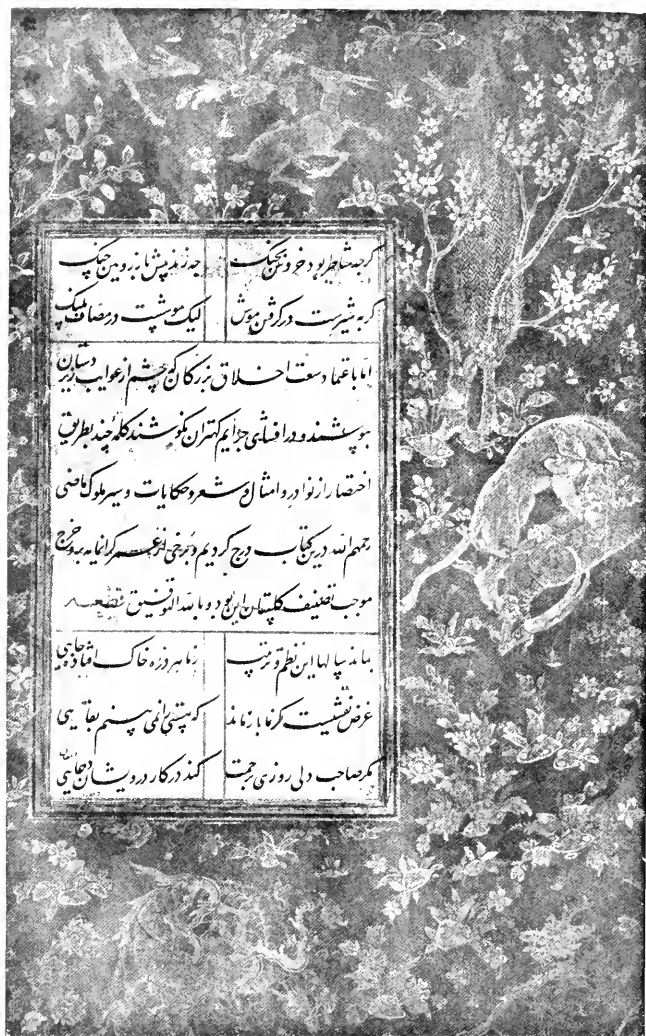 گرچه شاطر بود خروس بجنگ چه زند پیش باز رویین چنگ
گربه شیرست در گرفتن موش لیک موشست در مصاف پلنگ
اما باعتماد سعت اخلاق بزرگان که چشم از عوایب زیردستان
بپوشند و در افشای جرایم کهتران نکوشند کلمه چند بطریق
اختصار از نوادر و امثال و شعر و حکایات و سیر ملوک ماضی
رحمهم الله درین کتاب درج کردیم و برخی از عمر گرانمایه برو خرج
موجب تصنیف گلستان این بود و بالله التوفیق قطعه
بماند سالها این نظم و ترتیب ز ما هر ذره خاک افتاده جایی
غرض نقشیست کز ما باز ماند که هستی را نمی بینم بقایی
مگر صاحب دلی روزی برحمت کند در کار درویشان دعایی